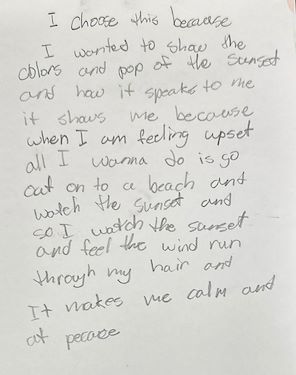 I choose this because
I wanted to show the
colors and pop of the sunset
and how it speaks to me
it shows me because
when I am feeling upset
all I wanna do is go
out on to a beach and
watch the sunset and
so I watch the sunset
and feel the wind run
through my hair and
It makes me calm and
at pecace